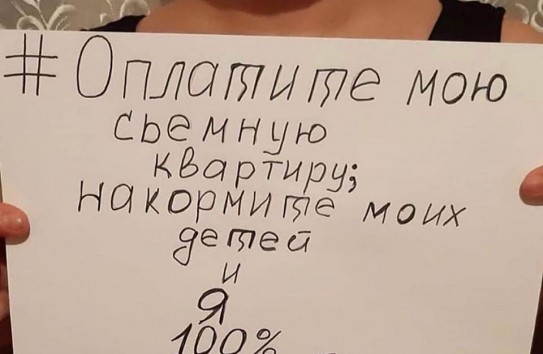 #Оплатите мою
сьемную
квартиру;
накормите моих
детей
и
Я
100%